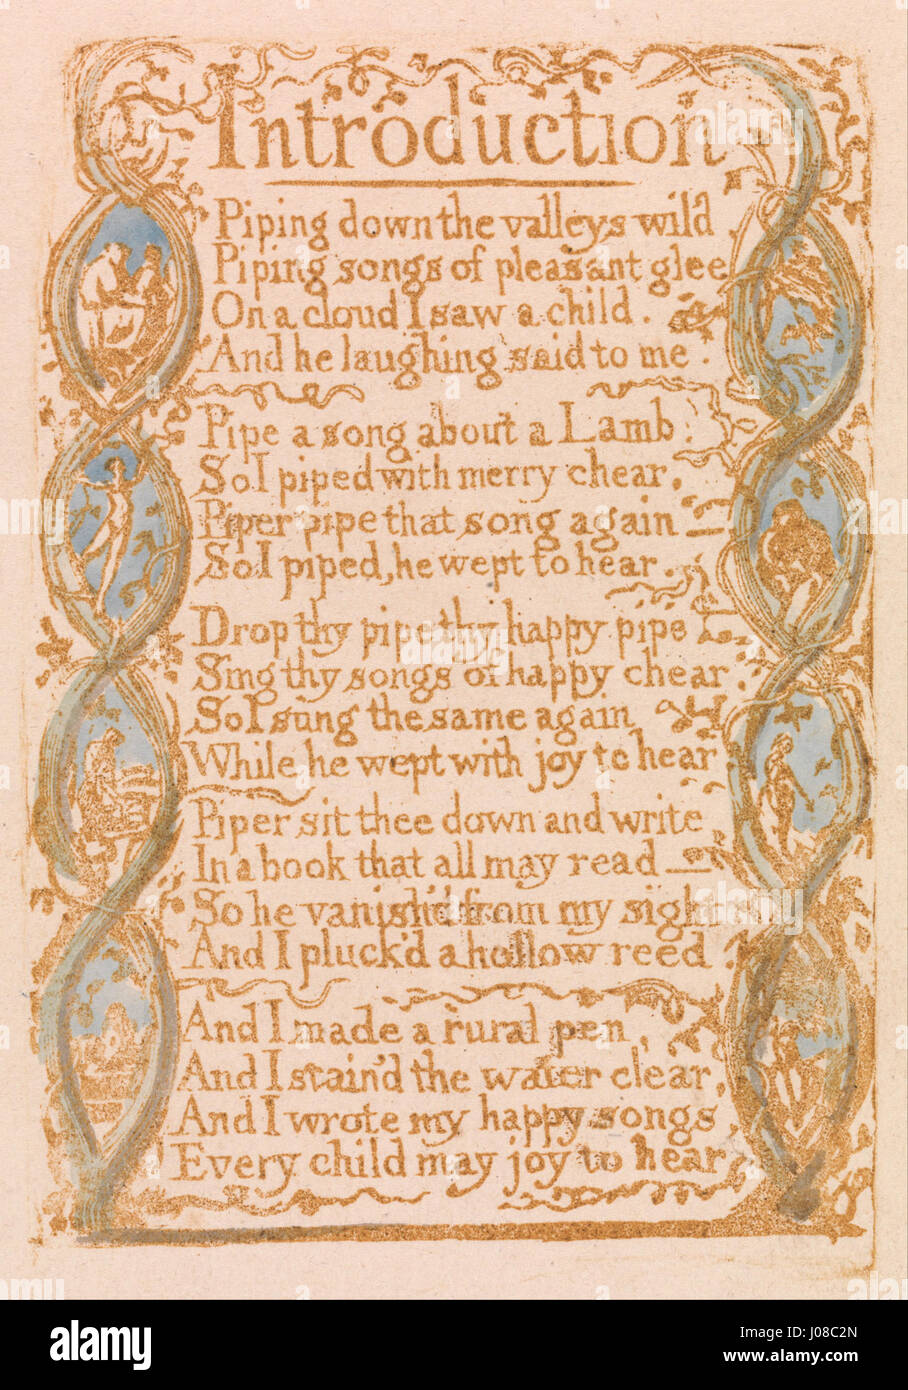 Introduction
Piping down the valleys wild
Piping songs of pleasant glee
On a cloud I saw a child.
And he laughing said to me.
Pipe a song about a Lamb:
So I piped with merry chear,
Piper pipe that song again—
So I piped, he wept to hear.
Drop thy pipe thy happy pipe
Sing thy songs of happy chear.
So I sung the same again
While he wept with joy to hear
Piper sit thee down and write
In a book that all may read—
So he vanish'd from my sight
And I pluck'd a hollow reed
And I made a rural pen,
And I stain'd the water clear,
And I wrote my happy songs
Every child may joy to hear
alamy
Image ID: J08C2N
www.alamy.com